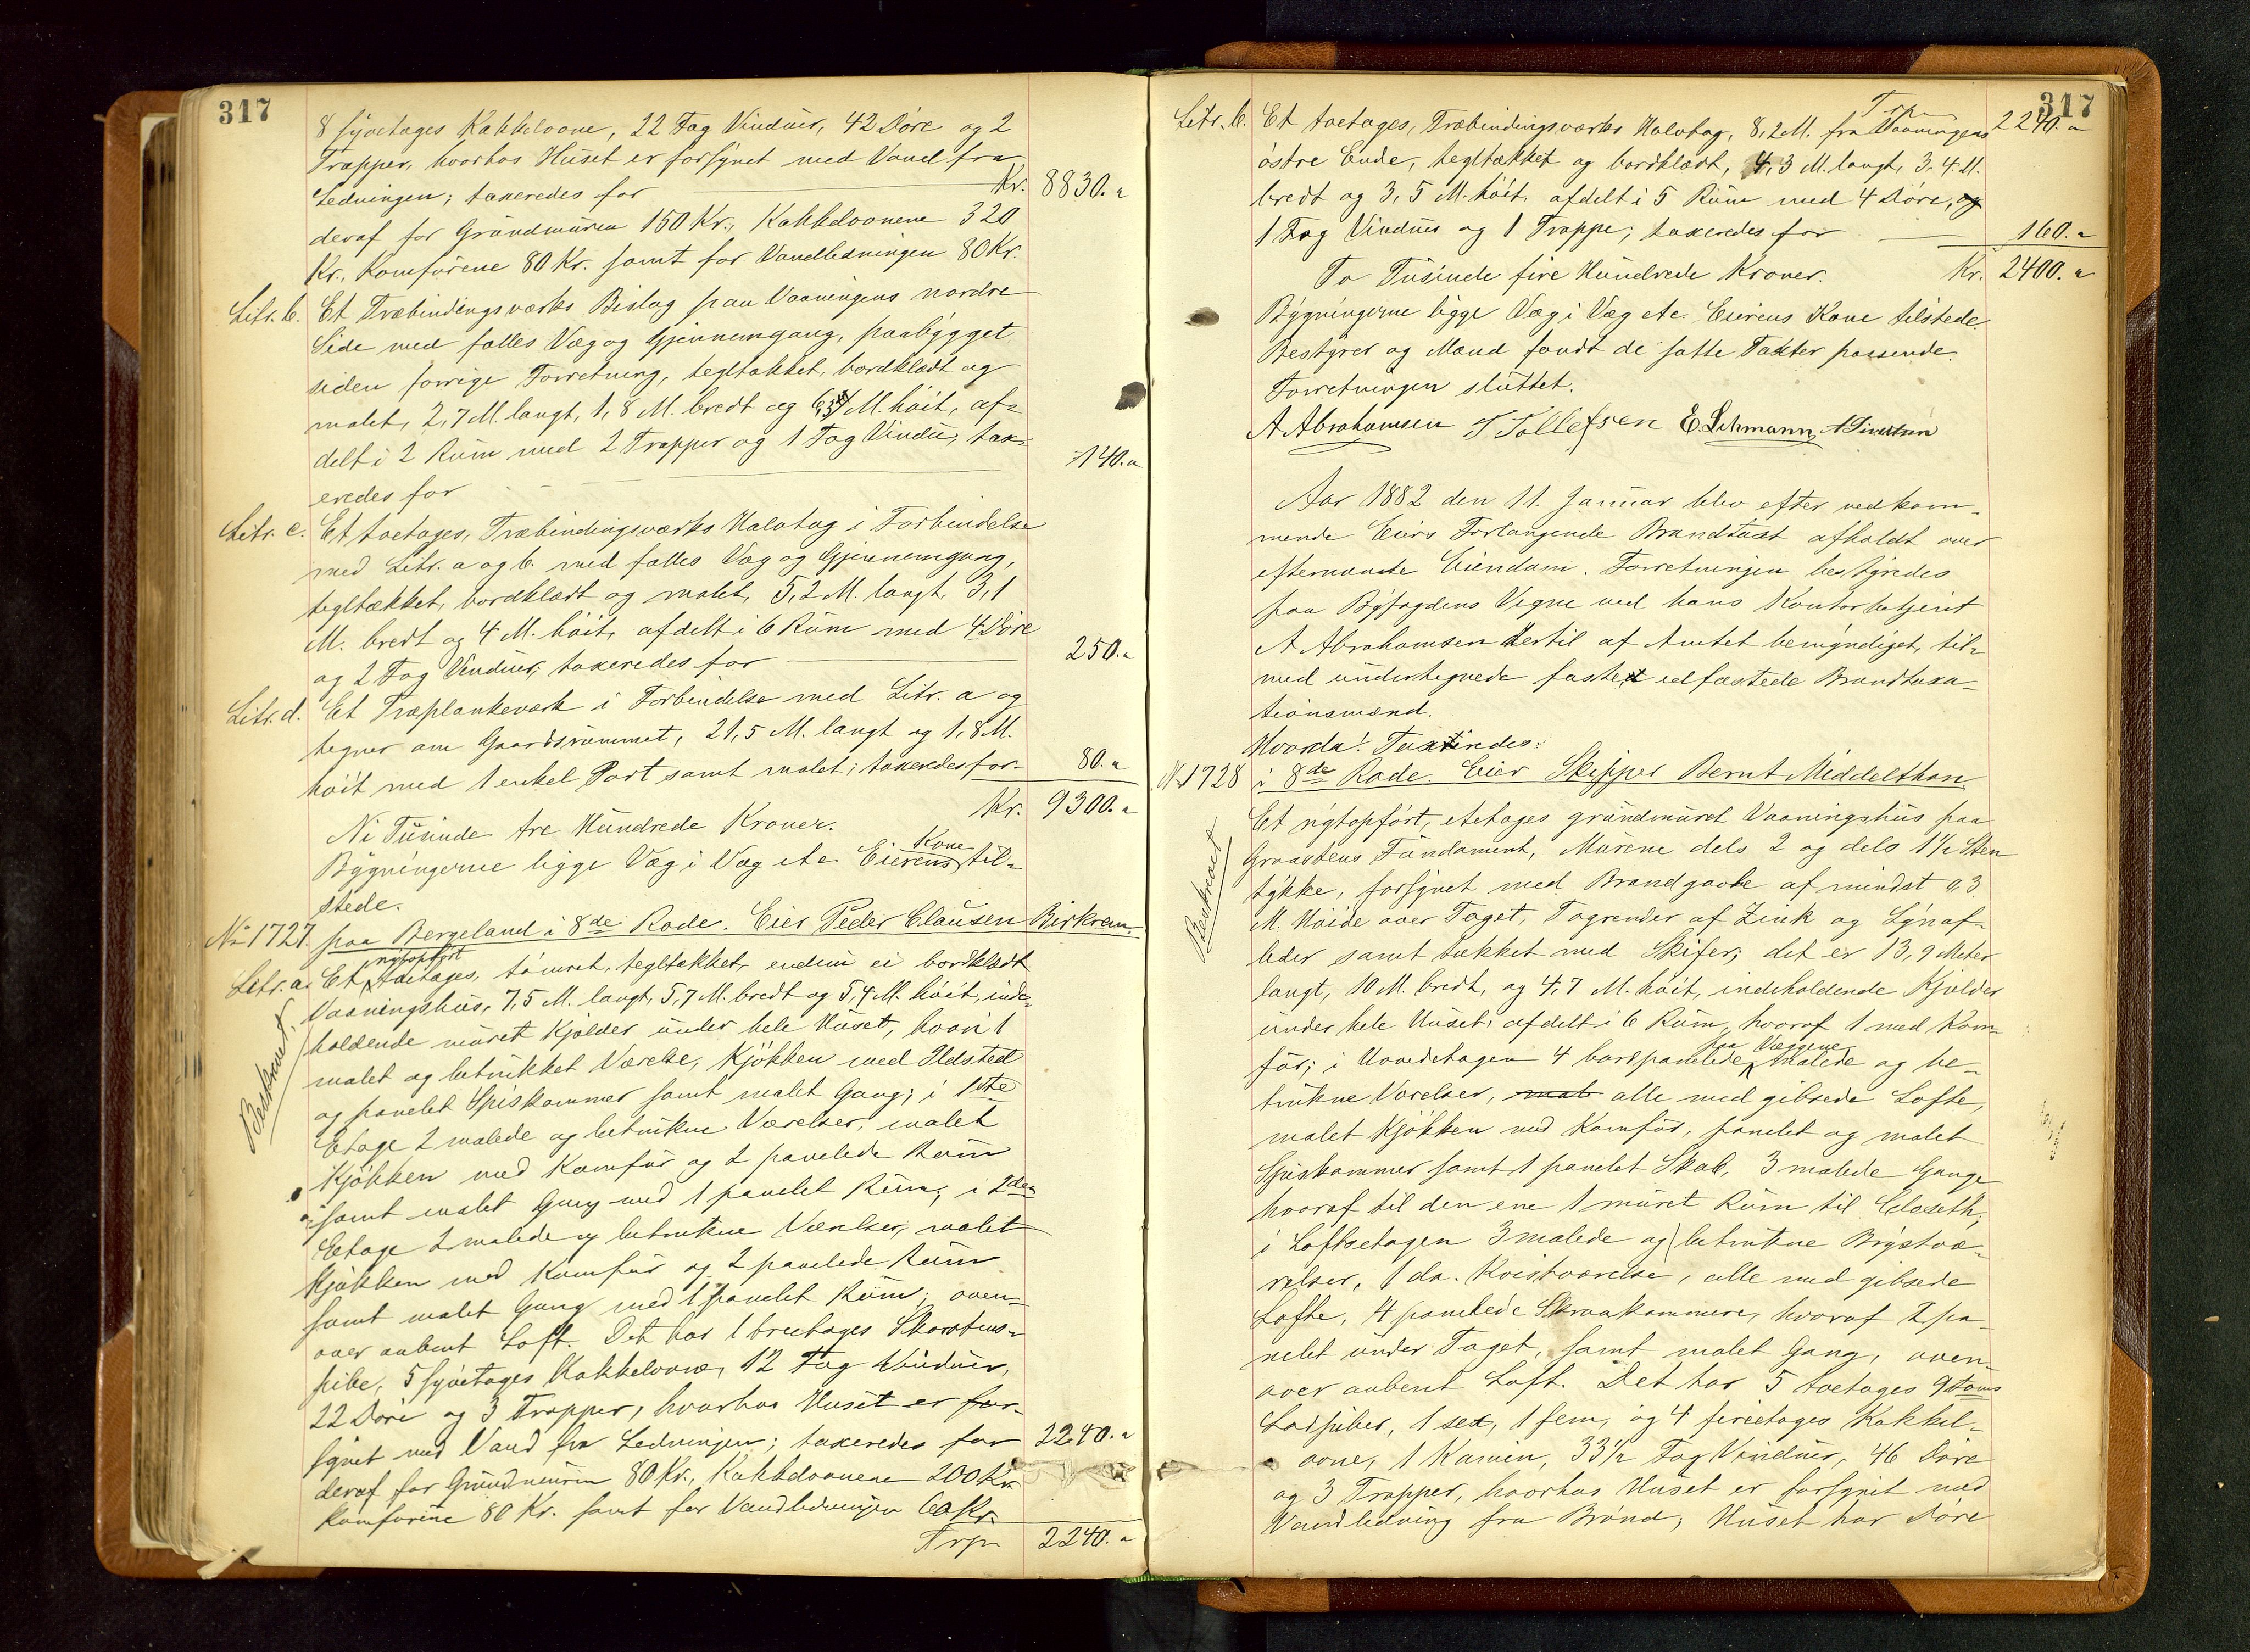 317
8 fyretages Kakkelovne, 22 Fag Vinduer, 42 Döre og 2
Trapper, hvorhos Huset er forsynet med Vand fra
Ledningen; taxeredes for Kr. 8830. "
deraf for Grundmuren 150 Kr., Kakkelovnene 320
Kr., Komfurene 80 Kr. samt for Vandledningen 80 Kr.
Litr. b. Et Træbindingsværks Bislag paa Vaaningens nordre
Side med fælles Væg og Gjennemgang, paabygget
siden forrige Forretning, tegltækket, bordklædt og
malet, 2,7 M. langt, 1,8 M. bredt og M. höit, af-
delt i 2 Rum med 2 Trapper og 1 Fag Vindu, tax-
eredes for 140. "
Litr. c. Et toetages, Træbindingsværks Halvtag i Forbindelse
med Litr. a og b. med fælles Væg og Gjennemgang,
tegltækket, bordklædt og malet, 5,2 M. langt, 3,1
M. bredt og 4 M. höit, afdelt i 6 Rum med 4 Döre
og 2 Fag Vinduer, taxeredes for 250. "
Litr. d. Et Træplankeværk i Forbindelse med Litr. a og
tegner om Gaardsrummet, 21,5 M. langt og 1,8 M.
höit med 1 enkel Port samt malet; taxeredes for 80. "
Ni Tusinde tre Hundrede Kroner. Kr. 9300. "
Bygningerne ligge Væg i Væg etc. Eierens Kone til-
stede.
No 1727. paa Bergeland i 8de Rode. Eier Peder Clausen Birkrem.
Litr. a. Et nyopfört toetages, tömret, tegltækket, endnu ei bordklædt
Vaaningshus, 7,5 M. langt, 5,7 M. bredt og 5,4 M. höit, inde-
Beskrevet.
holdende muret Kjelder under hele Huset, hvori 1
malet og betrukket Værelse, Kjökken med Ildsted
og panelet Spiskammer samt malet Gang; i 1ste
Etage 2 malede og betrukne Værelser, malet
Kjökken med Komfur og 2 panelede Rum
samt malet Gang med 1 panelet Rum; i 2den
Etage 2 malede og betrukne Værelser, malet
Kjökken med Komfur og 2 panelede Rum
samt malet Gang med 1 panelet Rum; oven-
over aabent Loft. Det har 1 treetages Skorstens-
pibe, 5 fyretages Kakkelovne, 12 Fag Vinduer,
22 Döre og 3 Trapper, hvorhos Huset er for-
synet med Vand fra Ledningen; taxeredes for 2240. "
deraf for Grundmuren 80 Kr., Kakkelovnene 200 Kr.
Komfurene 80 Kr. samt for Vandledningen 60 Kr.
Trp. 2240. "
317
Trp. 2240. "
Litr. b. Et toetages, Træbindingsværks Halvtag, 8,2 M. fra Vaaningens
östre Ende, tegltækket og bordklædt, 4,3 M. langt, 3,4 M.
bredt og 3,5 M. höit, afdelt i 5 Rum med 4 Döre, og
1 Fag Vindue og 1 Trappe; taxeredes for 160. "
To Tusinde fire Hundrede Kroner. Kr. 2400. "
Bygningerne ligge Væg i Væg etc. Eierens Kone tilstede.
Bestyrer og Mænd fandt de satte Taxter passende.
Forretningen sluttet.
A Abrahamsen T Tollefsen E. Lehmann,
Aar 1882 den 11. Januar blev efter vedkom-
mende Eiers Forlangende Brandtaxt afholdt over
efternævnte Eiendom. Forretningen bestyredes
paa Byfogdens Vegne ved hans Kontorbetjent
A Abrahamsen dertil af Amtet bemyndiget, til-
med undertegnede faste edfæstede Brandtaxa-
tionsmænd.
Hvorda! Taxeredes:
No 1728 i 8de Rode. Eier Skipper Bernt Middelthon
Et nyopfört, etetages grundmuret Vaaningshus paa
Graastens Fundament, Murene dels 2 og dels 1½ Sten
Beskrevet
tykke, forsynet med Brandgavle af mindst 0,3
M. Höide over Taget, Tagrender af Zink og Lynaf-
leder samt tækket med Skifer; det er 13,9 Meter
langt, 10 M. bredt, og 4,7 M. höit, indeholdende Kjelder
under hele Huset, afdelt i 6 Rum, hvoraf 1 med Kom-
fur; i Hovedetagen 4 bordpanelede, paa Væggene malede og be-
trukne Værelser, alle med gibsede Lofte,
malet Kjökken med Komfur, panelet og malet
Spiskammer samt 1 panelet Skab, 3 malede Gange
hvoraf til den ene 1 muret Rum til Closeth;
i Loftsetagen 3 malede og betrukne Brystvæ-
relser, 1 do. Kvistværelse, alle med gibsede
Lofte, 4 panelede Skraakammere, hvoraf 2 pa-
nelet under Taget, samt malet Gang, oven-
over aabent Loft. Det har 5 toetages 9 Toms
Lodpiber, 1 sex, 1 fem, og 4 fireetages Kakkel-
ovne, 1 Kamin, 33½ Fag Vinduer, 46 Döre
og 3 Trapper, hvorhos Huset er forsynet med
Vandledning fra Brönd; Huset har Döre